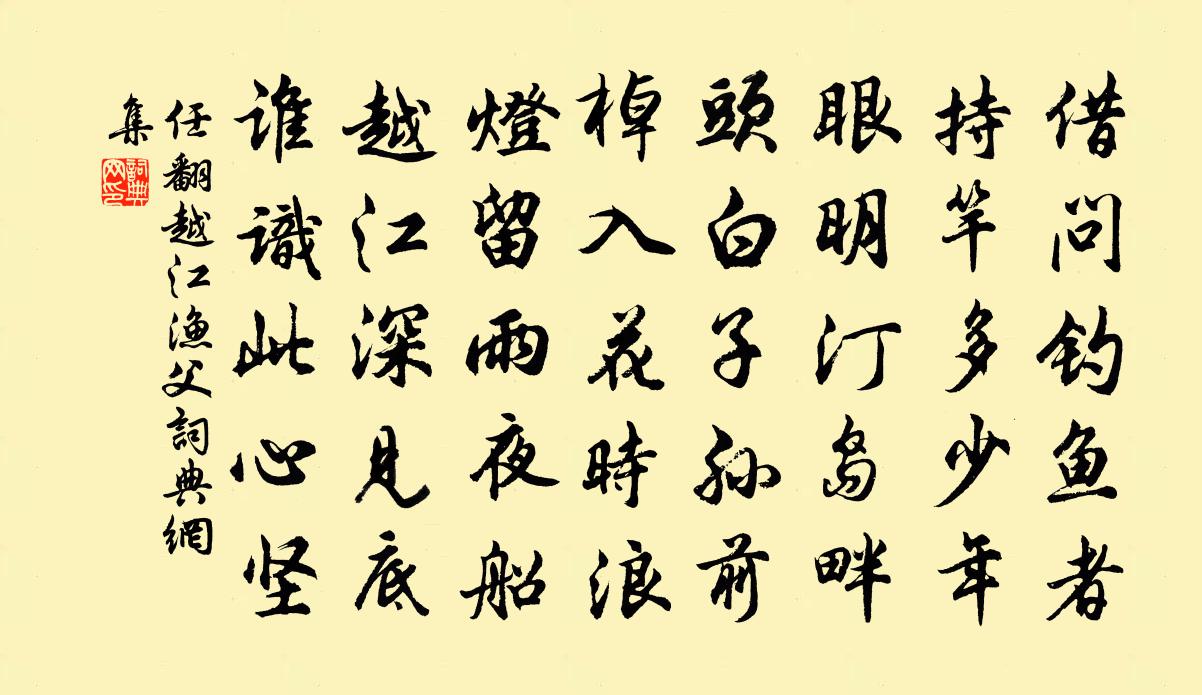 借问钓鱼者
持竿多少年
眼明汀岛畔
头白子孙前
棹入花時浪
燈留雨夜船
越江深見底
谁識此心坚
任翻越江渔父詞典網
集
詞典網印